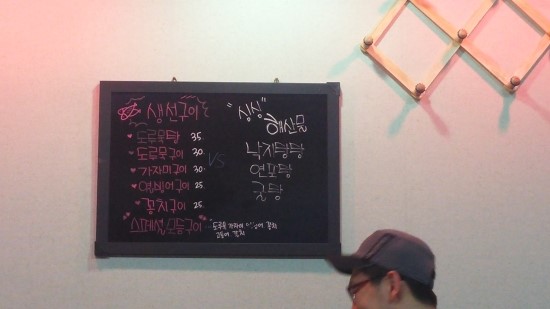 생선구이
도루묵탕 35.
도루묵구이 30.
가자미구이 30.
열빙어구이 25.
꽁치구이 25.
스페셜 모듬구이
VS
"싱싱"
해산물
낙지탕탕
연포탕
굴탕